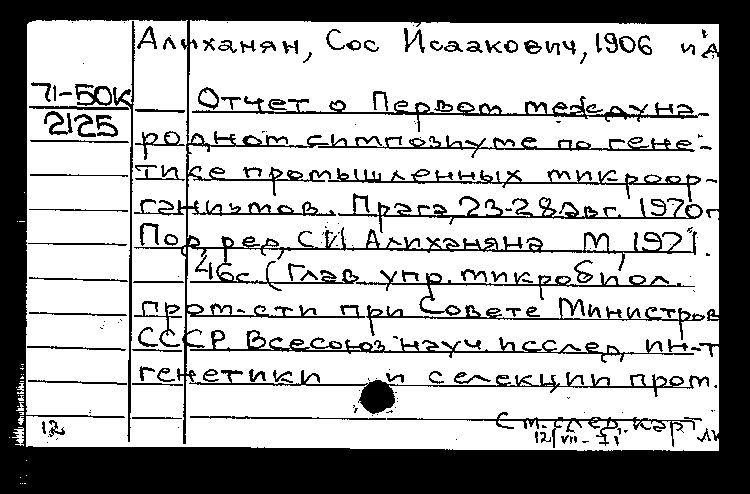 Алиханян, Сос Исаакович, 1906 и
71-50к
2125
Отчет о Первом междуна-
родном симпозиуме по гене-
тике промышленных микроор-
ганизмов. Прага, 23-28 авг. 1970 г
Под ред. С.И. Алиханяна М., 1971.
46с (Глав упр. микробиол.
пром-сти при Совете Министров
СССР. Всесоюз. науч. исслед. ин-т
генетики и селекции пром.
См. след. карт
12
12/VII-71